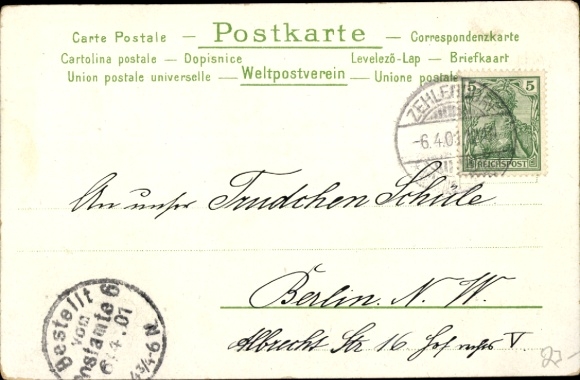 Carte Postale — Postkarte — Correspondenzkarte
Cartolina postale — Dopisnice Levelező-Lap — Briefkaart
Union postale universelle — Weltpostverein — Unione postale
5 5
REICHSPOST
ZEHLEN
-6.4.01
An unser Trudchen Schüle
Berlin. N. W.
Albrecht Str 16 Hof rechts V
Bestellt
vom
Postamte 6
6/4.01
N 9
23-